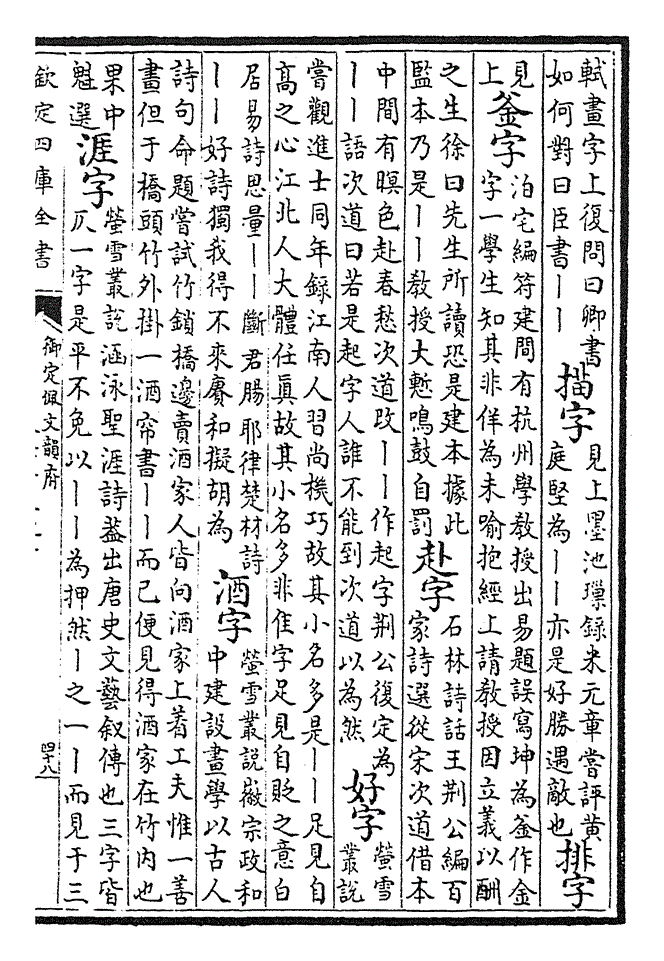 軾畫字上復問曰卿書
如何對曰臣書丨丨
描字
見上墨池瓅錄米元章嘗評黃
庭堅為丨丨亦是好勝遇敵也
排字
見
上
釜字
泊宅編符建間有杭州學教授出易題誤寫坤為釜作金
字一學生知其非佯為未喻抱經上請教授因立義以酬
之生徐曰先生所讀恐是建本據此
監本乃是丨丨教授大慙鳴鼓自罰
赴字
石林詩話王荆公編百
家詩選從宋次道借本
中間有暝色赴春愁次道改丨丨作起字荆公復定為
丨丨語次道曰若是起字人誰不能到次道以為然
好字
螢雪
叢說
嘗觀進士同年錄江南人習尚機巧故其小名多是丨丨足見自
高之心江北人大體任眞故其小名多非隹字足見自貶之意白
居易詩思量丨丨斷君腸耶律楚材詩
丨丨好詩獨我得不來賡和擬胡為
酒字
螢雪叢說徽宗政和
中建設畫學以古人
詩句命題嘗試竹鎖橋邊賣酒家人皆向酒家上着工夫惟一善
畫但于橋頭竹外掛一酒帘書丨丨而已便見得酒家在竹内也
果中
魁選
涯字
螢雪叢說涵泳聖涯詩葢出唐史文藝叙傳也三字皆
仄一字是平不免以丨丨為押然丨之一丨而見于三
欽定四庫全書
御定佩文韻府
四十八